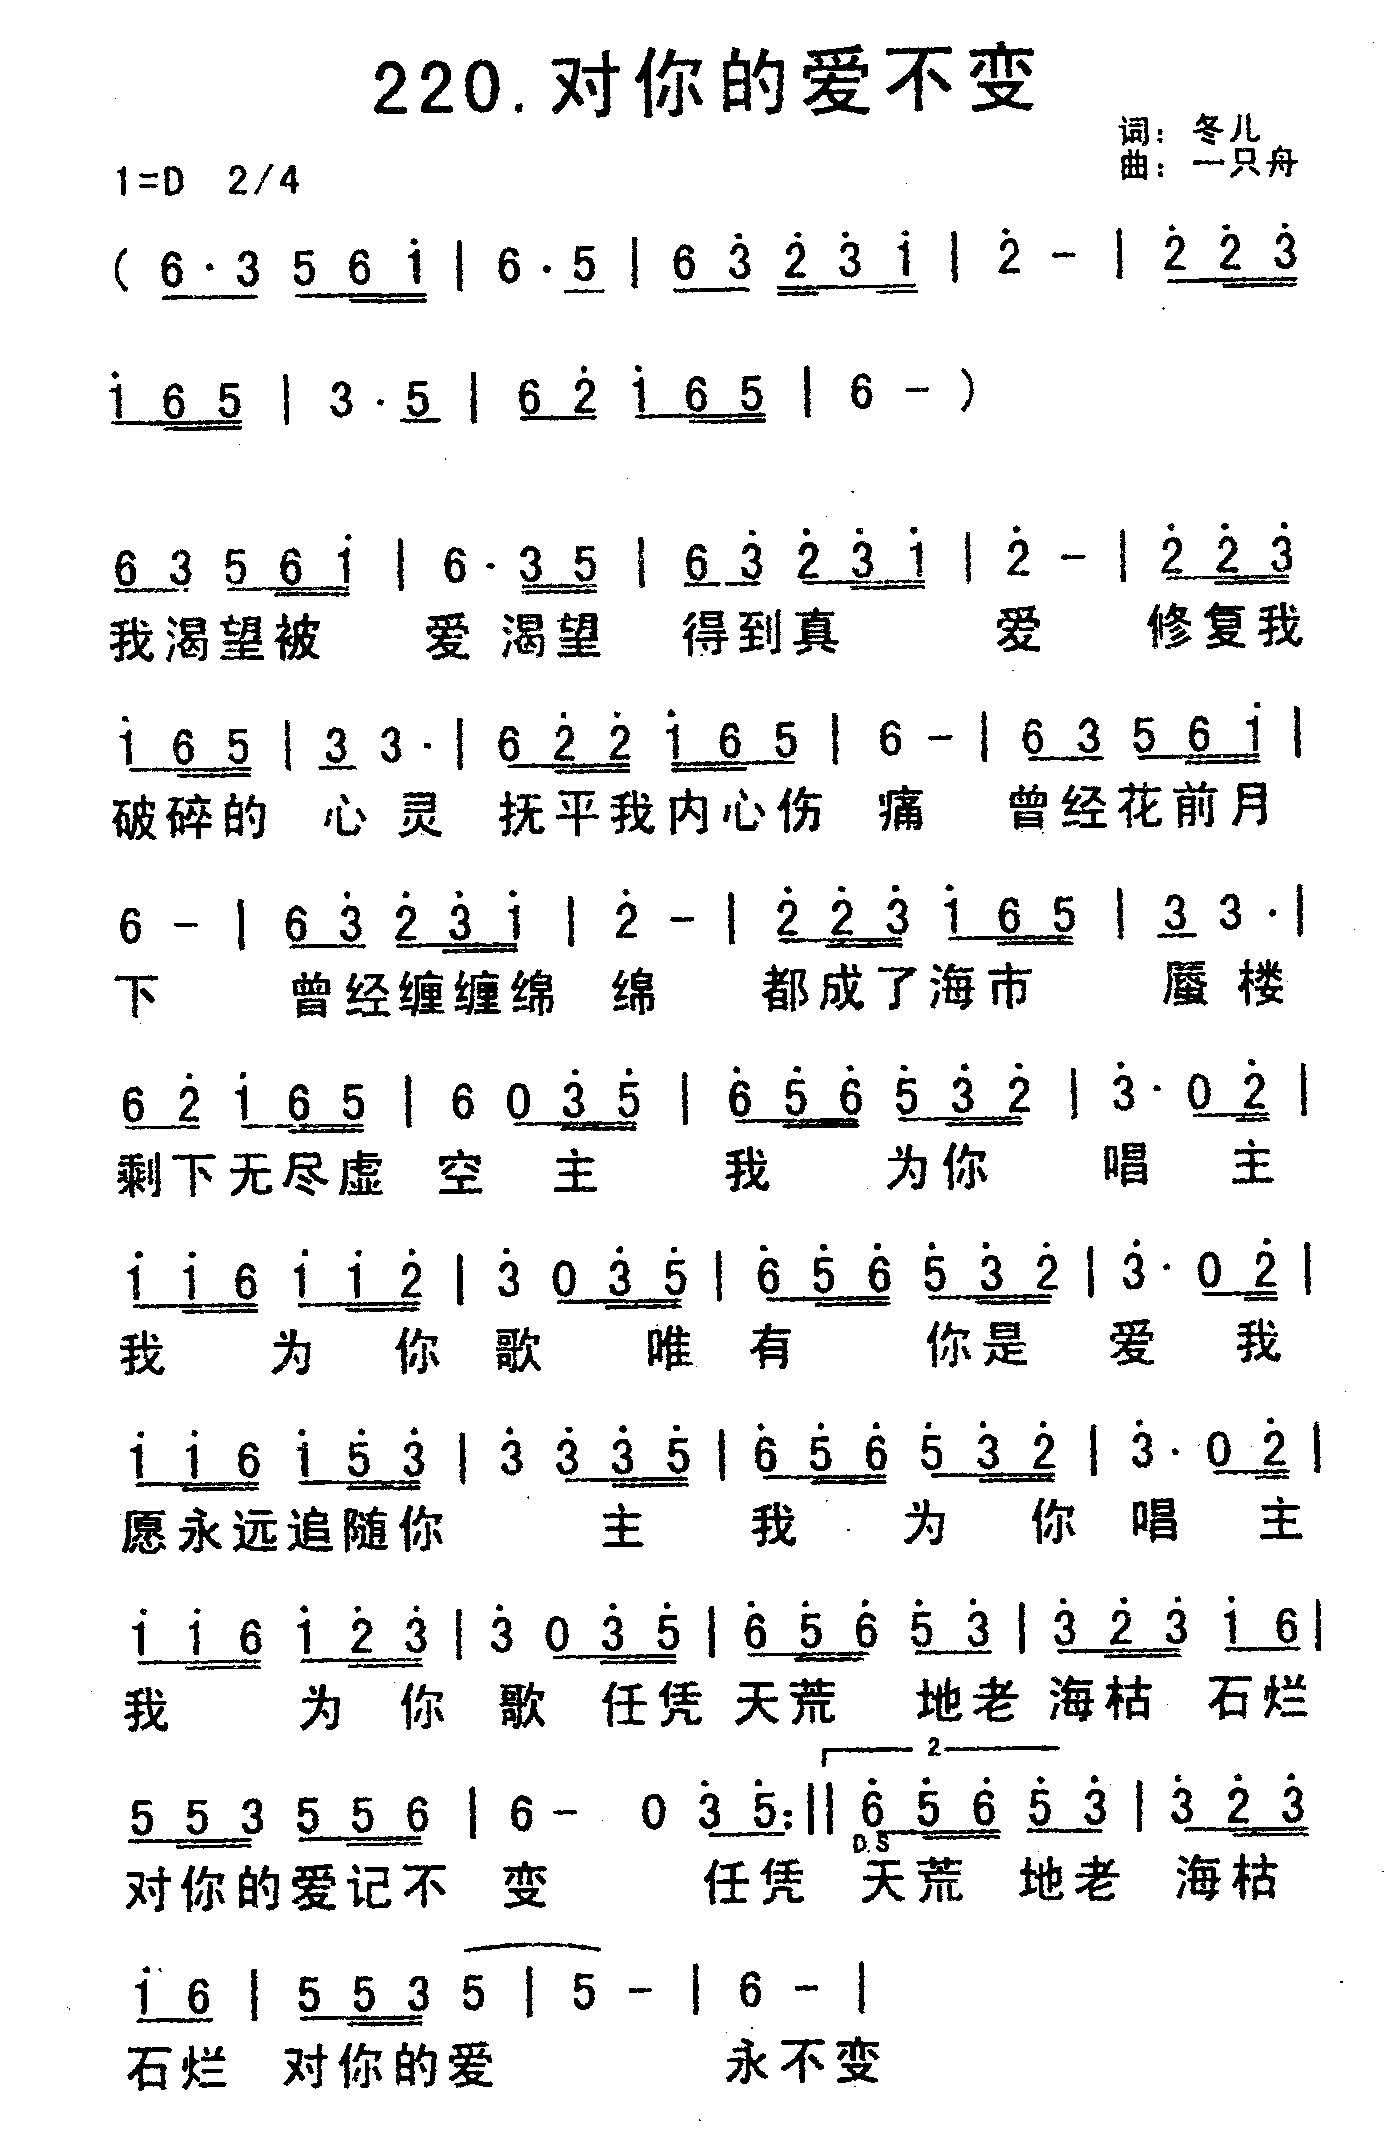 220.对你的爱不变
词：冬儿
1=D 2/4
曲：一只舟
( 6·3 5 6 i | 6·5 | 6 3̇ 2̇ 3̇ i | 2̇ - | 2̇ 2̇ 3̇
i 6 5 | 3·5 | 6 2̇ i 6 5 | 6 - )
6 3 5 6 i | 6·3 5 | 6 3̇ 2̇ 3̇ i | 2̇ - | 2̇ 2̇ 3̇
我渴望被 爱 渴望 得到真 爱 修复我
i 6 5 | 3 3· | 6 2̇ 2̇ i 6 5 | 6 - | 6 3 5 6 i |
破碎的 心 灵 抚平我内心伤 痛 曾经花前月
6 - | 6 3̇ 2̇ 3̇ i | 2̇ - | 2̇ 2̇ 3̇ i 6 5 | 3 3· |
下 曾经缠缠绵 绵 都成了海市 蜃 楼
6 2̇ i 6 5 | 6 0 3̇ 5̇ | 6̇ 5̇ 6̇ 5̇ 3̇ 2̇ | 3̇· 0 2̇ |
剩下无尽虚 空 主 我 为你 唱 主
i i 6 i i 2̇ | 3̇ 0 3̇ 5̇ | 6̇ 5̇ 6̇ 5̇ 3̇ 2̇ | 3̇· 0 2̇ |
我 为 你 歌 唯 有 你是 爱 我
i i 6 i 5̇ 3̇ | 3̇ 3̇ 3̇ 5̇ | 6̇ 5̇ 6̇ 5̇ 3̇ 2̇ | 3̇· 0 2̇ |
愿永远追随你 主 我 为 你 唱 主
i i 6 i 2̇ 3̇ | 3̇ 0 3̇ 5̇ | 6̇ 5̇ 6̇ 5̇ 3̇ | 3̇ 2̇ 3̇ i 6 |
我 为 你 歌 任凭 天荒 地老 海枯 石烂
2
5 5 3 5 5 6 | 6 - 0 3̇ 5̇ :|| 6̇ 5̇ 6̇ 5̇ 3̇ | 3̇ 2̇ 3̇
D.S
对你的爱记不 变 任凭 天荒 地老 海枯
i 6 | 5 5 3 5 | 5 - | 6 - |
石烂 对你的爱 永不变